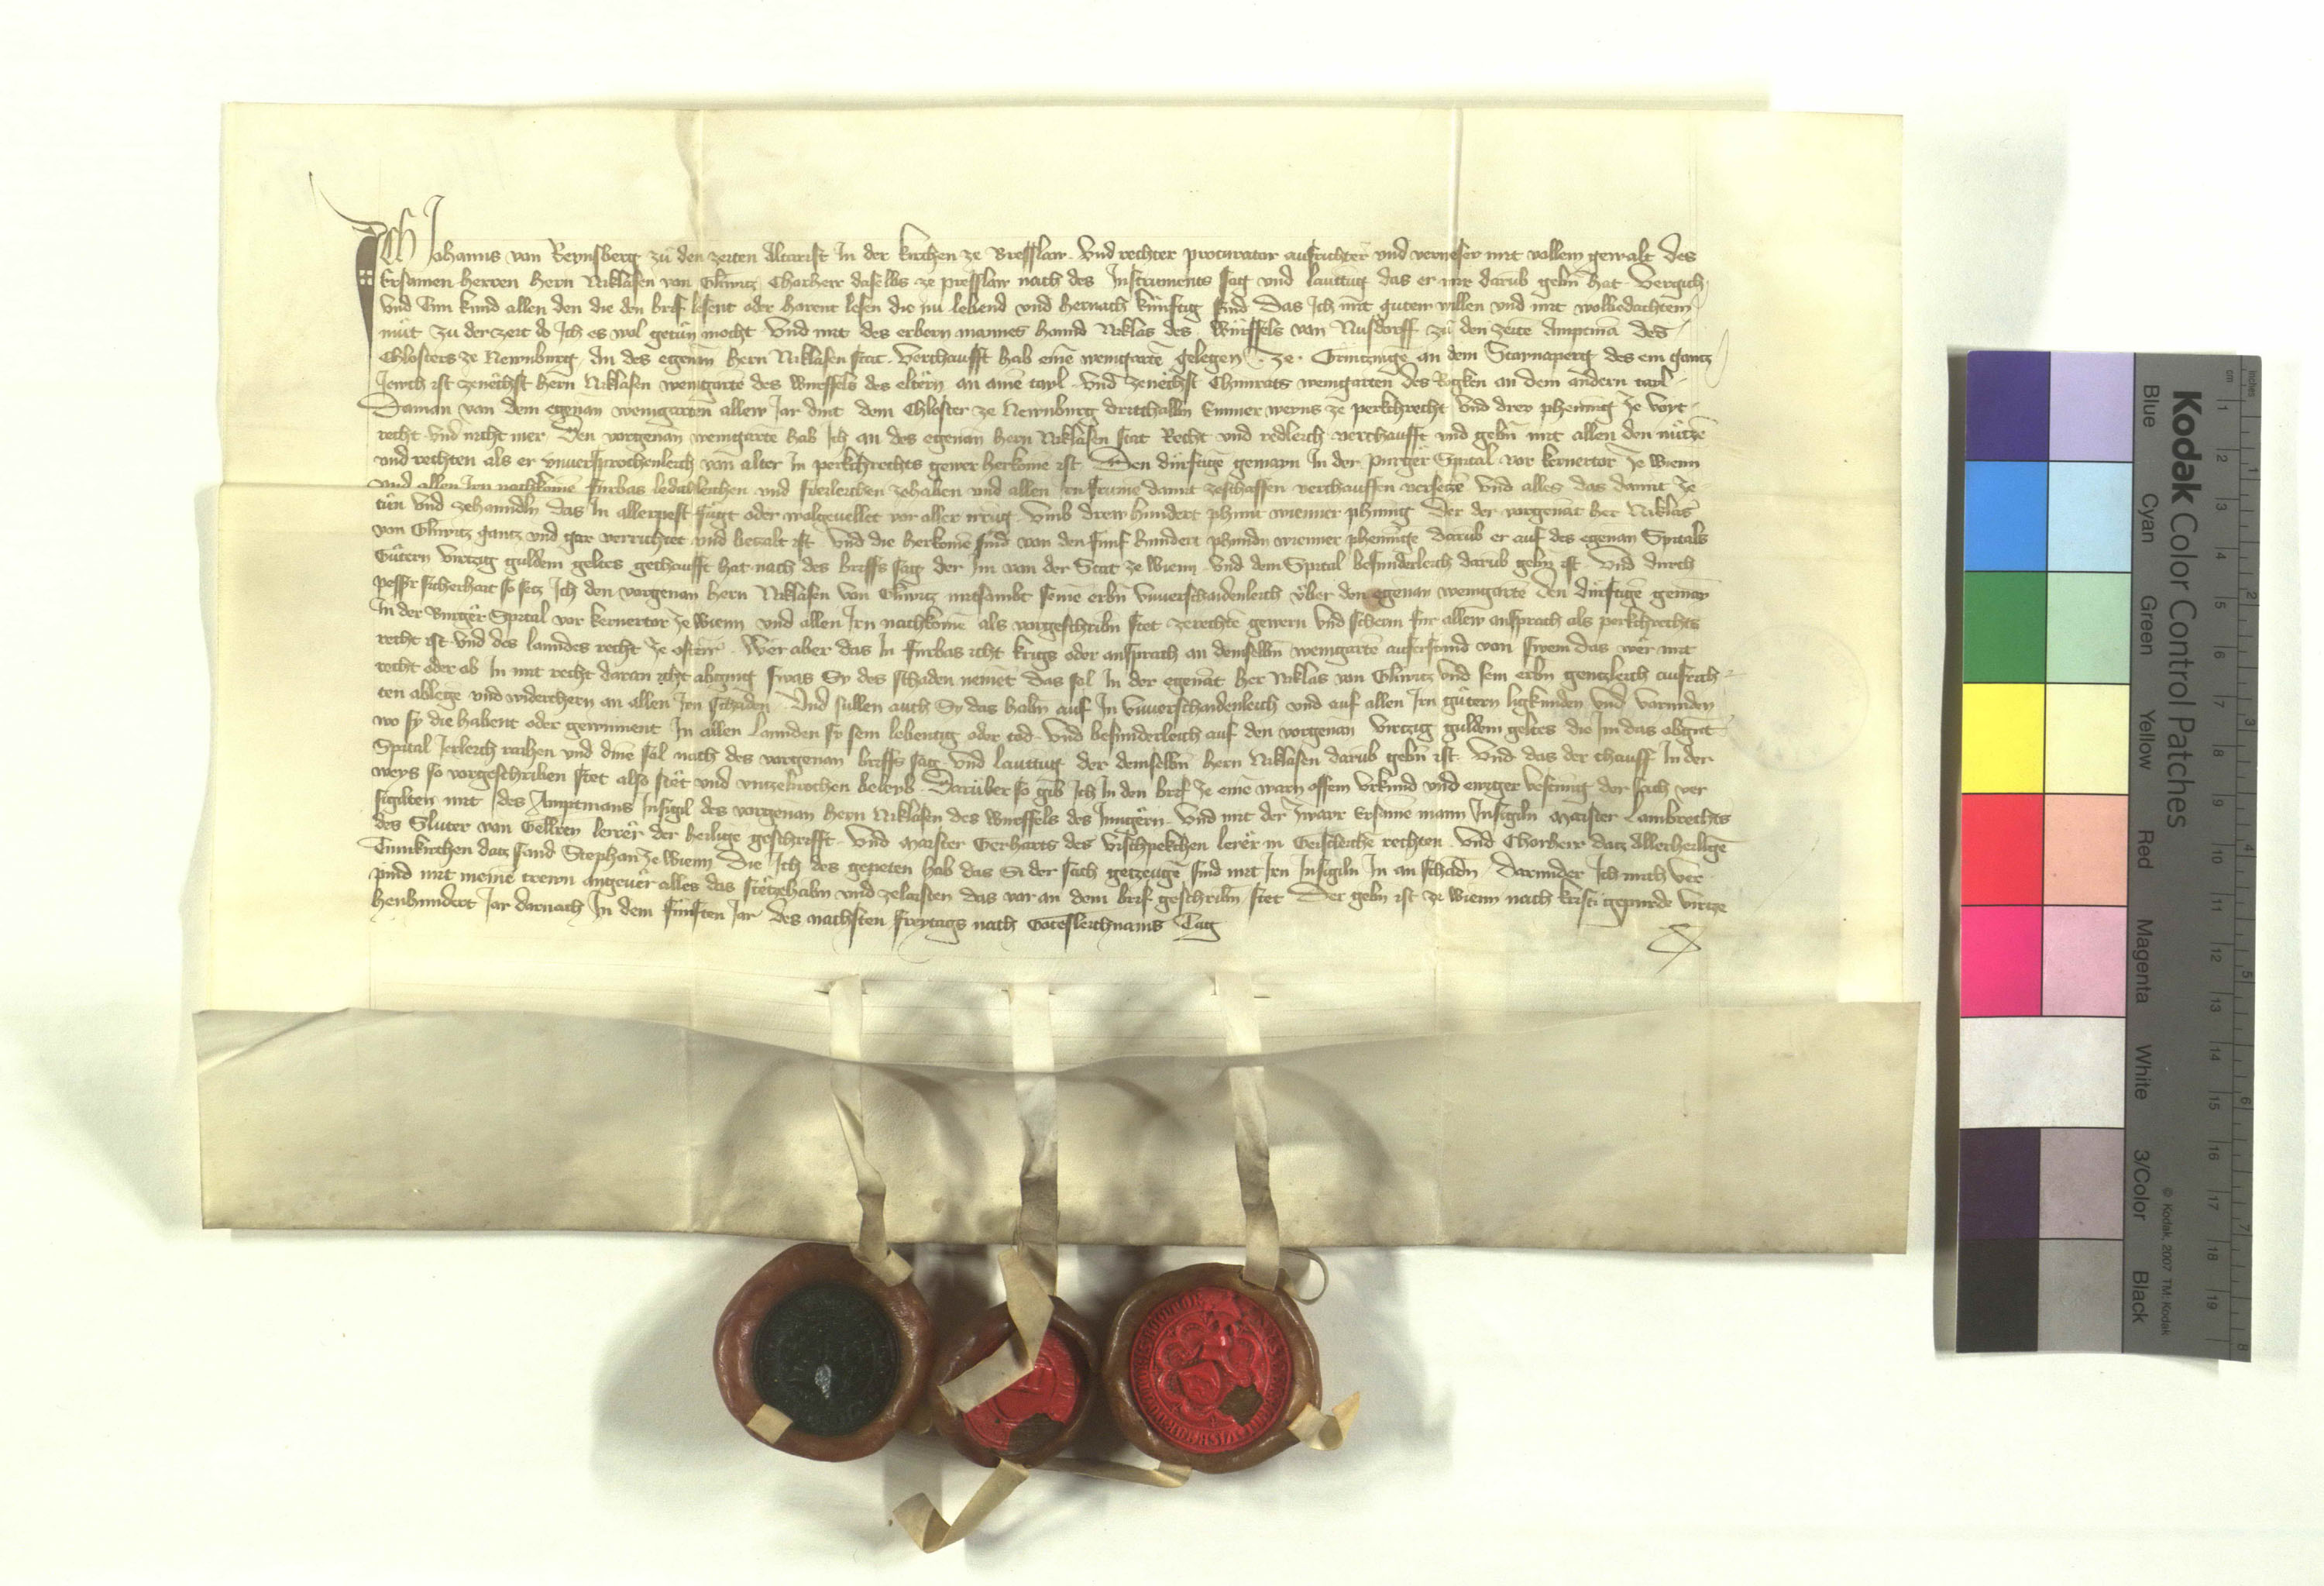 Ich Johanns von Reynsberg zu den zeiten Altarist In der kirchen ze Bresslaw und rechter procurator ausrichter und verweser mit vollem gewalt des
Ersamen herren hern Niklasen von Gliwitz Chorherr daselbs ze presslaw nach des Instruments sag und lauttug das er mir darub gebn hat Vergich
und Tun kund allen den die den brif lesent oder horent lesen die nu lebend und hernach kunftig sind Das Ich mit gutem willen und mit wolbedachtem
mut zu der zeit do Ich es wol getun mocht und mit des erbern mannes hannd Niklas des Würffels von Nusdorff zu den zeite Amptma des
Chlosters ze Newnburg An des egenan hern Niklasen stat verchaufft hab eine weingarte gelegen ze Grintzinge an dem Starnaperg des ein gantz
Jewch ist zenechst hern Niklasen weingarte des Wurffels des eltern an aine tayl und zenechst Chunrats weingarten des Rokken an dem andern tayl
Daman von dem egenan weingarten allew Jar dint dem Chloster ze Newnburg dritthalbn Emmer weyns ze perkchrecht und drey phening ze voyt
recht und nicht mer Den vorgenan weingarte hab Ich an des egenan hern Niklasen stat Recht und redleich verchaufft und gebn mit allen den nutze
und rechten als er unversprochenleich von alter In perkchrechts gewer herkome ist Den durftige gemayn In der purger Spital vor kernertor ze Wienn
und allen Irn nachkome furbas ledichleichen und freileichen zehaben und allen Irn frume damit zeschaffen verchauffen verseze und alles das damit ze
tun und zehanndln das In allerpest fugt oder wolgevellet vor aller irrug umb drew hundert phunt wienner phennig Der der vorgenat her Niklas
von Gliwitz gantz und gar verrichtet und betzalt ist und die herkome sind von den funf hundert phundn wienner phennige darub er auf des egenan Spitals
Gutern virtzig guldein geltes gechaufft hat nach des briffs sag der Im von der Stat ze Wienn und dem Spital besunderleich darub gebn ist und durch
pessr sicherhait so setz Ich den vorgenan hern Niklasen von Gliwitz mitsambt seine erbn unverschaidenleich über den egenan weingarte den durftige gemay
In der Burger Spital vor kernertor ze Wienn und allen Irn nachkome als vorgeschribn stet zerechte gewern und scherm für allew ansprach als perkchrechts
recht ist und des lanndes recht ze osterr Wer aber das In furbas icht krigs oder ansprach an demselbn weingarte auferstund von swem das wer mit
recht oder ob In mit recht daran icht abgieng swas Sy des schaden nement das sol In der egenat her Niklas von Gliwitz und sein erbn gentzleich ausrich
ten ablege und widerchern an allen Irn schaden und sullen auch Sy das habn auf In unverschaidenleich und auf allen Irn gutern ligkunden und varunden
wo sy die habent oder gewinnent In allen Lannden sy sein lebentig oder tod und besunderleich auf den vorgenan virtzig guldein geltes die Im das obgnt
Spital Jerleich raihen und dine sol nach des vorgenan briffs sag und lauttug der demselbn hern Niklasen darub gebn ist und das der chauff In der
weys so vorgeschriben stet also stet und untzebrochen beleyb Darüber so gib Ich In den brif ze eine warn offem Urkund und ewiger vestung der sach ver
sigilten mit des Amptmans Insigil des vorgenan hern Niklasen des Wurffels des Jungern und mit der zwayr Ersame mann Insigiln Maister Lambrechts
des Sluter von Gellren lerrer der heilige geschrifft und Maister Gerharts des Vischpekchen lerer in Geistleiche rechten und Chorherr datz Allerheilige
Tumkirchen datz sand Stephan ze Wienn Die Ich des gepeten hab das Si der sach getzeuge sind mit Irn Insigiln In an schadn Darunder Ich mich ver
pind mit meine trewn angever alles das stet zehabn und zelaisten das vor an dem brif geschribn stet Der gebn ist ze Wienn nach kristi gepurde virtze
henhundert Jar darnach In dem funften Jar des nachsten freytags nach Gotesleichnams Tag
Kodak Color Control Patches
Blue Cyan Green Yellow Red Magenta White 3/Color Black
© Kodak, 2007 TM: Kodak
inches 1 2 3 4 5 6 7 8
cm 1 2 3 4 5 6 7 8 9 10 11 12 13 14 15 16 17 18 19